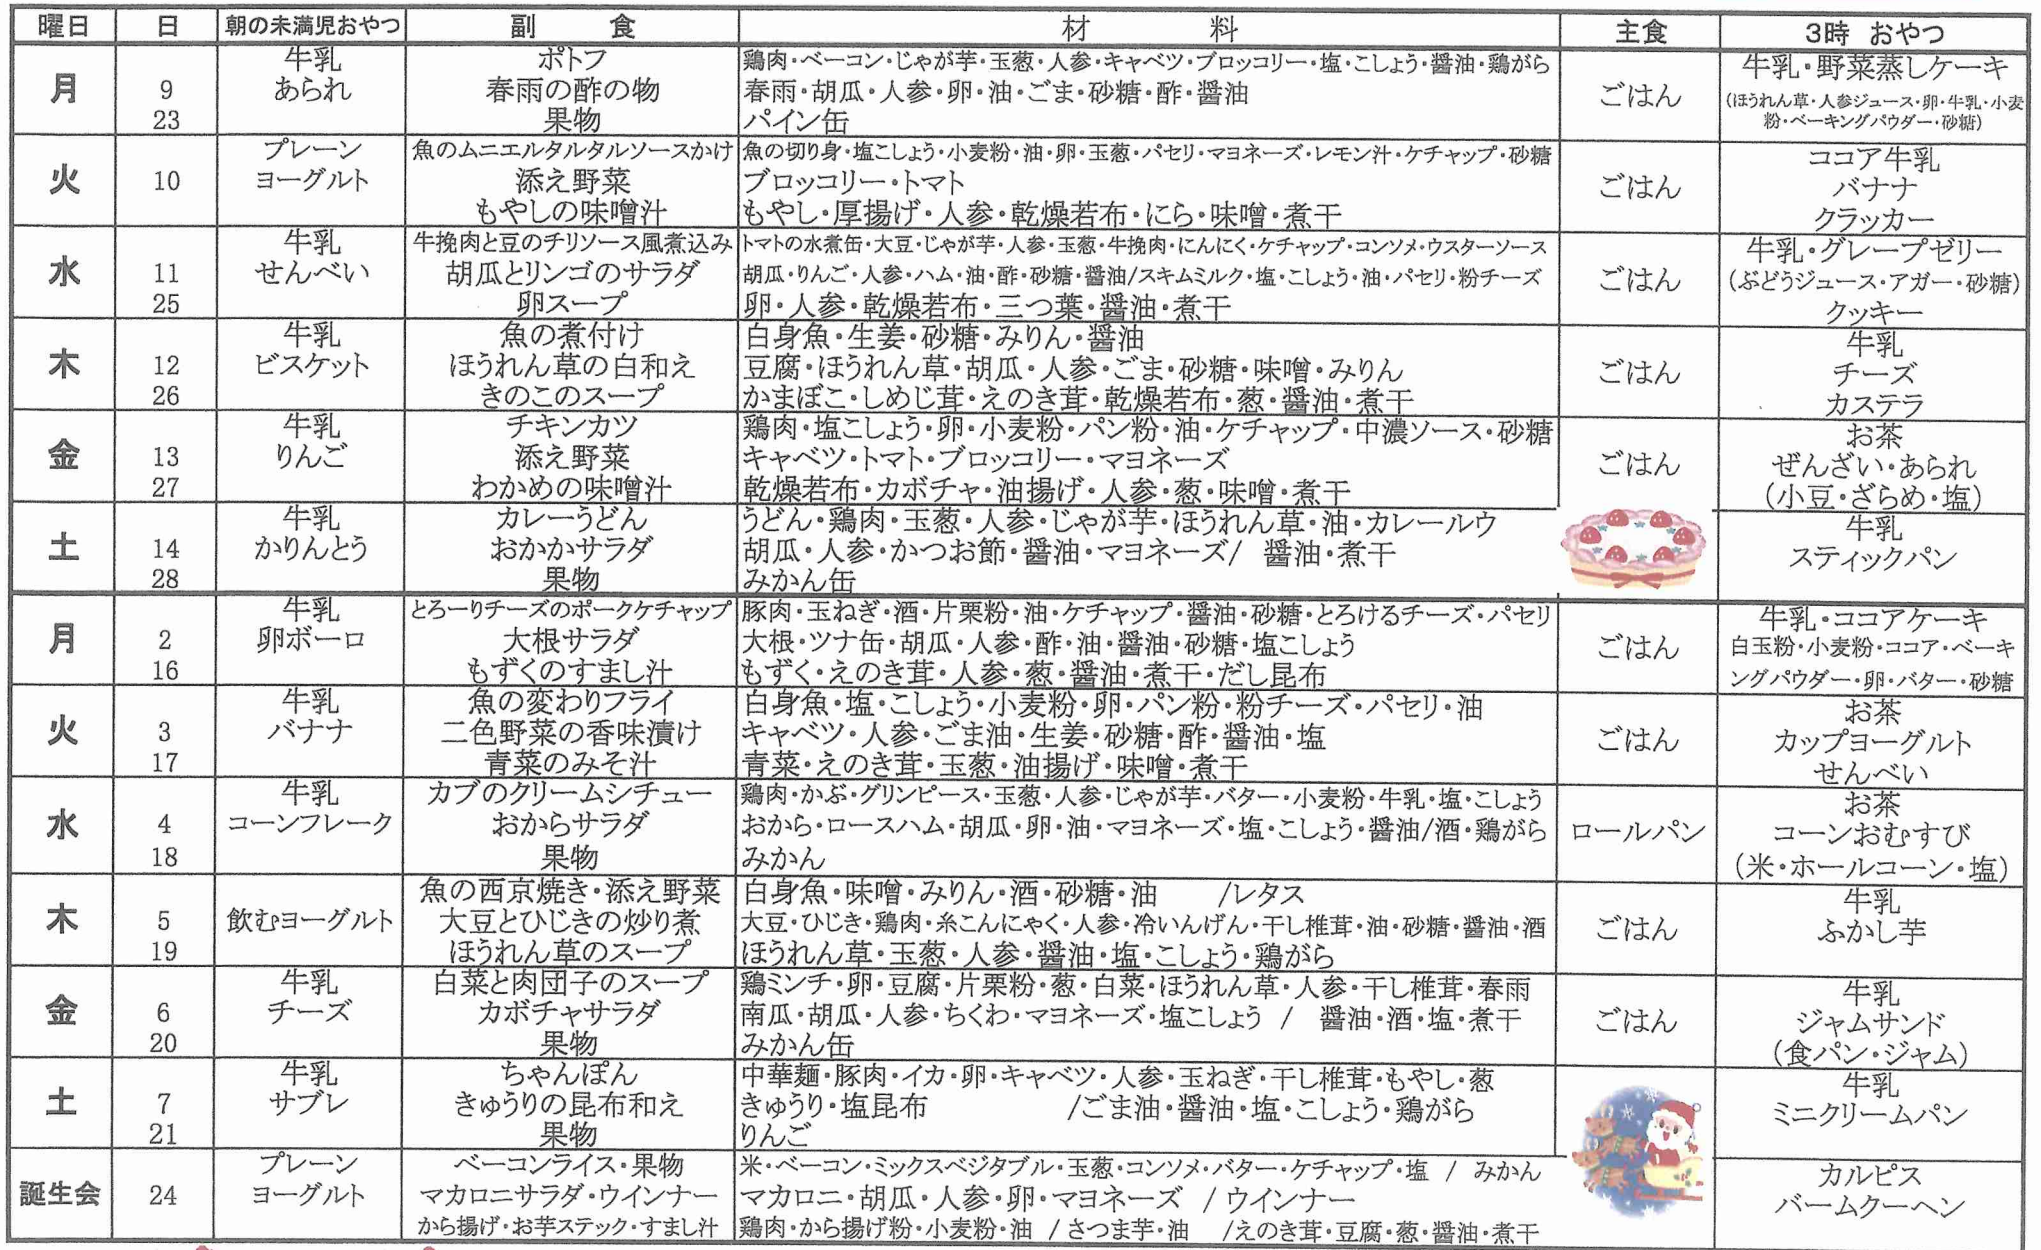 曜日 日 朝の未満児おやつ 副 食 材 料 主食 3時 おやつ
月 9 23
牛乳
あられ
ポトフ
春雨の酢の物
果物
鶏肉・ベーコン・じゃが芋・玉葱・人参・キャベツ・ブロッコリー・塩・こしょう・醤油・鶏がら
春雨・胡瓜・人参・卵・油・ごま・砂糖・酢・醤油
パイン缶
ごはん
牛乳・野菜蒸しケーキ
(ほうれん草・人参ジュース・卵・牛乳・小麦
粉・ベーキングパウダー・砂糖)
火 10
プレーン
ヨーグルト
魚のムニエルタルタルソースかけ
添え野菜
もやしの味噌汁
魚の切り身・塩こしょう・小麦粉・油・卵・玉葱・パセリ・マヨネーズ・レモン汁・ケチャップ・砂糖
ブロッコリー・トマト
もやし・厚揚げ・人参・乾燥若布・にら・味噌・煮干
ごはん
ココア牛乳
バナナ
クラッカー
水 11 25
牛乳
せんべい
牛挽肉と豆のチリソース風煮込み
胡瓜とリンゴのサラダ
卵スープ
トマトの水煮缶・大豆・じゃが芋・人参・玉葱・牛挽肉・にんにく・ケチャップ・コンソメ・ウスターソース
胡瓜・りんご・人参・ハム・油・酢・砂糖・醤油/スキムミルク・塩・こしょう・油・パセリ・粉チーズ
卵・人参・乾燥若布・三つ葉・醤油・煮干
ごはん
牛乳・グレープゼリー
(ぶどうジュース・アガー・砂糖)
クッキー
木 12 26
牛乳
ビスケット
魚の煮付け
ほうれん草の白和え
きのこのスープ
白身魚・生姜・砂糖・みりん・醤油
豆腐・ほうれん草・胡瓜・人参・ごま・砂糖・味噌・みりん
かまぼこ・しめじ茸・えのき茸・乾燥若布・葱・醤油・煮干
ごはん
牛乳
チーズ
カステラ
金 13 27
牛乳
りんご
チキンカツ
添え野菜
わかめの味噌汁
鶏肉・塩こしょう・卵・小麦粉・パン粉・油・ケチャップ・中濃ソース・砂糖
キャベツ・トマト・ブロッコリー・マヨネーズ
乾燥若布・カボチャ・油揚げ・人参・葱・味噌・煮干
ごはん
お茶
ぜんざい・あられ
(小豆・ざらめ・塩)
土 14 28
牛乳
かりんとう
カレーうどん
おかかサラダ
果物
うどん・鶏肉・玉葱・人参・じゃが芋・ほうれん草・油・カレールウ
胡瓜・人参・かつお節・醤油・マヨネーズ/ 醤油・煮干
みかん缶
牛乳
スティックパン
月 2 16
牛乳
卵ボーロ
とろーりチーズのポークケチャップ
大根サラダ
もずくのすまし汁
豚肉・玉ねぎ・酒・片栗粉・油・ケチャップ・醤油・砂糖・とろけるチーズ・パセリ
大根・ツナ缶・胡瓜・人参・酢・油・醤油・砂糖・塩こしょう
もずく・えのき茸・人参・葱・醤油・煮干・だし昆布
ごはん
牛乳・ココアケーキ
白玉粉・小麦粉・ココア・ベーキ
ングパウダー・卵・バター・砂糖
火 3 17
牛乳
バナナ
魚の変わりフライ
二色野菜の香味漬け
青菜のみそ汁
白身魚・塩・こしょう・小麦粉・卵・パン粉・粉チーズ・パセリ・油
キャベツ・人参・ごま油・生姜・砂糖・酢・醤油・塩
青菜・えのき茸・玉葱・油揚げ・味噌・煮干
ごはん
お茶
カップヨーグルト
せんべい
水 4 18
牛乳
コーンフレーク
カブのクリームシチュー
おからサラダ
果物
鶏肉・かぶ・グリンピース・玉葱・人参・じゃが芋・バター・小麦粉・牛乳・塩・こしょう
おから・ロースハム・胡瓜・卵・油・マヨネーズ・塩・こしょう・醤油/酒・鶏がら
みかん
ロールパン
お茶
コーンおむすび
(米・ホールコーン・塩)
木 5 19
飲むヨーグルト
魚の西京焼き・添え野菜
大豆とひじきの炒り煮
ほうれん草のスープ
白身魚・味噌・みりん・酒・砂糖・油 /レタス
大豆・ひじき・鶏肉・糸こんにゃく・人参・冷いんげん・干し椎茸・油・砂糖・醤油・酒
ほうれん草・玉葱・人参・醤油・塩・こしょう・鶏がら
ごはん
牛乳
ふかし芋
金 6 20
牛乳
チーズ
白菜と肉団子のスープ
カボチャサラダ
果物
鶏ミンチ・卵・豆腐・片栗粉・葱・白菜・ほうれん草・人参・干し椎茸・春雨
南瓜・胡瓜・人参・ちくわ・マヨネーズ・塩こしょう / 醤油・酒・塩・煮干
みかん缶
ごはん
牛乳
ジャムサンド
(食パン・ジャム)
土 7 21
牛乳
サブレ
ちゃんぽん
きゅうりの昆布和え
果物
中華麺・豚肉・イカ・卵・キャベツ・人参・玉ねぎ・干し椎茸・もやし・葱
きゅうり・塩昆布 /ごま油・醤油・塩・こしょう・鶏がら
りんご
牛乳
ミニクリームパン
誕生会 24
プレーン
ヨーグルト
ベーコンライス・果物
マカロニサラダ・ウインナー
から揚げ・お芋ステック・すまし汁
米・ベーコン・ミックスベジタブル・玉葱・コンソメ・バター・ケチャップ・塩 / みかん
マカロニ・胡瓜・人参・卵・マヨネーズ /ウインナー
鶏肉・から揚げ粉・小麦粉・油 /さつま芋・油 /えのき茸・豆腐・葱・醤油・煮干
カルピス
バームクーヘン